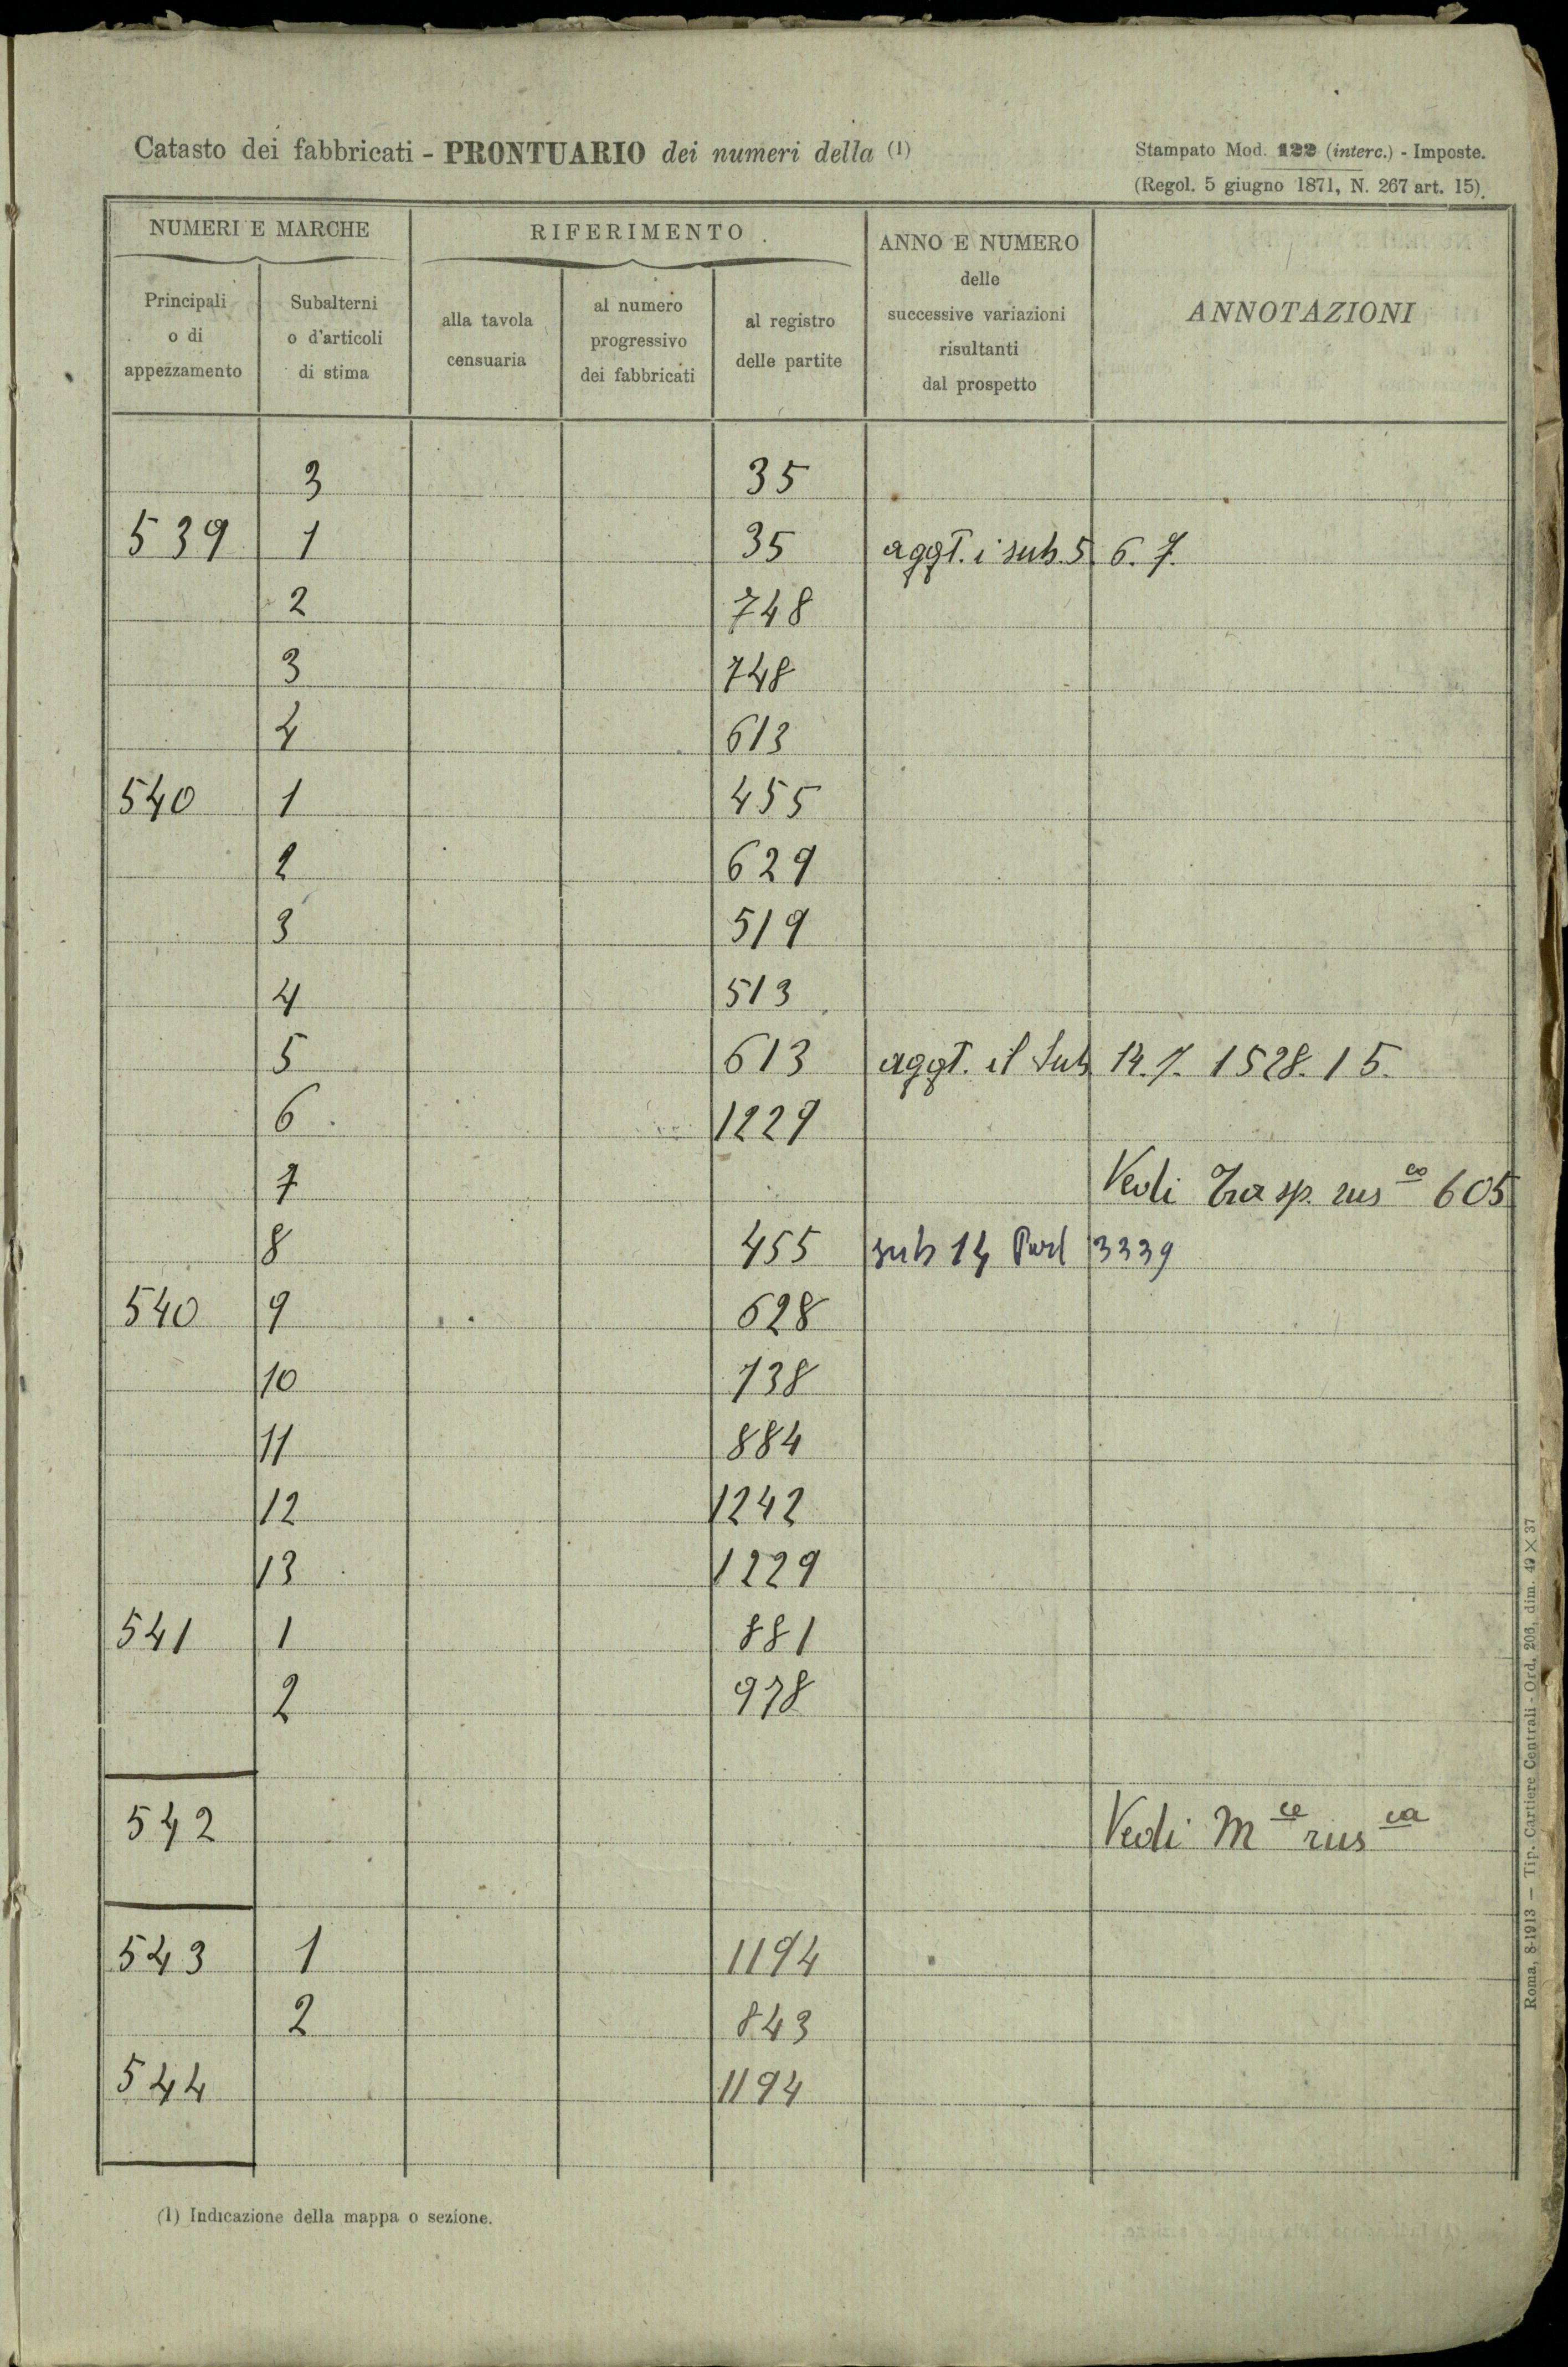 Catasto dei fabbricati - PRONTUARIO dei numeri della (1)
Stampato Mod. 122 (interc.) - Imposte.
(Regol. 5 giugno 1871, N. 267 art. 15).
NUMERI E MARCHE
RIFERIMENTO
ANNO E NUMERO
delle
successive variazioni
risultanti
dal prospetto
ANNOTAZIONI
Principali
o di
appezzamento
Subalterni
o d'articoli
di stima
alla tavola
censuaria
al numero
progressivo
dei fabbricati
al registro
delle partite
3 35
539 1 35 aggt. i sub. 5. 6. 7.
2 748
3 748
4 613
540 1 455
2 629
3 519
4 513
5 613 aggt. il Sub 14. 7. 1528. 15.
6 1229
7 Vedi Trasp. rus co 605
8 455 sub 14 Part 3339
540 9 628
10 738
11 884
12 1242
13 1229
541 1 881
2 978
542 Vedi M ce rus ca
543 1 1194
2 843
544 1194
(1) Indicazione della mappa o sezione.
Roma, 8-1913 — Tip. Cartiere Centrali - Ord. 206, dim. 49 × 37